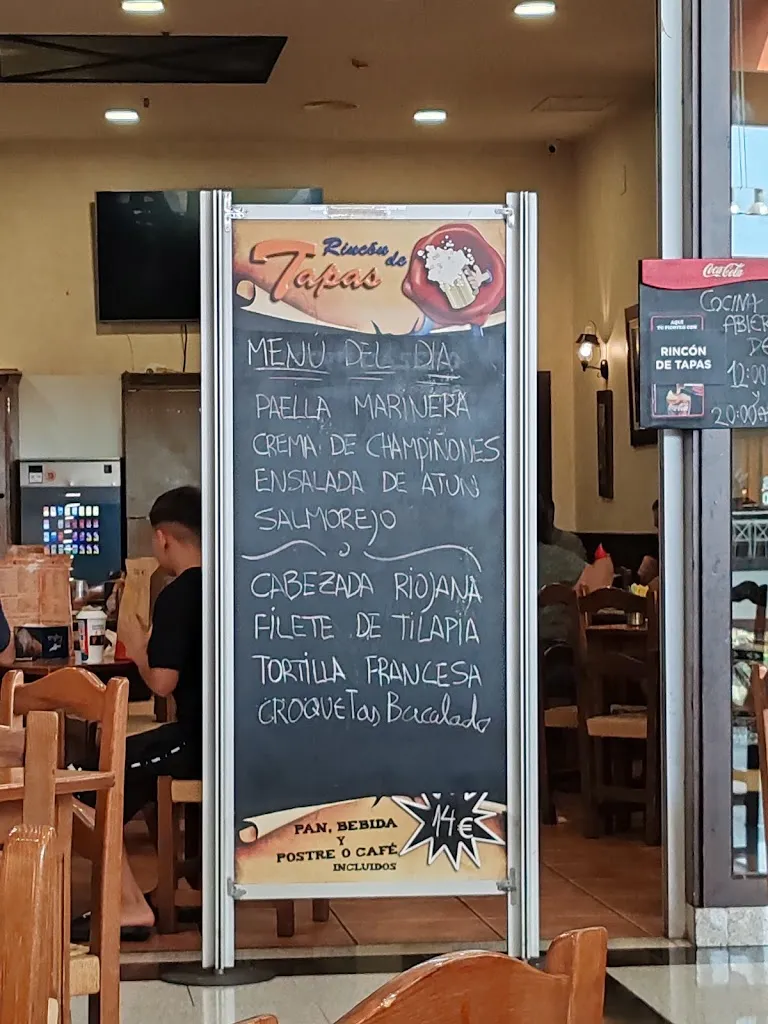 Rincón de
Tapas
MENÚ DEL DIA
PAELLA MARINERA
CREMA DE CHAMPIÑONES
ENSALADA DE ATUN
SALMOREJO
CABEZADA RIOJANA
FILETE DE TILAPIA
TORTILLA FRANCESA
CROQUETas Bacalado
PAN, BEBIDA
Y
POSTRE O CAFÉ
INCLUIDOS
14€
Coca-Cola
COCINA
ABIER
DE
12:00
y
20:00
AQUÍ
RINCÓN
DE TAPAS